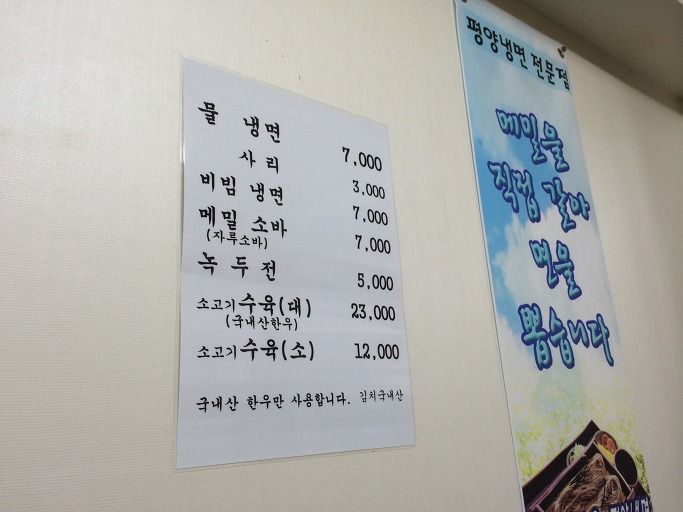 물 냉면 7,000
사리 3,000
비빔 냉면 7,000
메밀 소바 7,000
(자루소바)
녹두전 5,000
소고기 수육(대) 23,000
(국내산한우)
소고기 수육(소) 12,000
국내산 한우만 사용합니다. 김치국내산
평양냉면 전문점
메밀을
직접 갈아
면을
뽑습니다
평양냉면